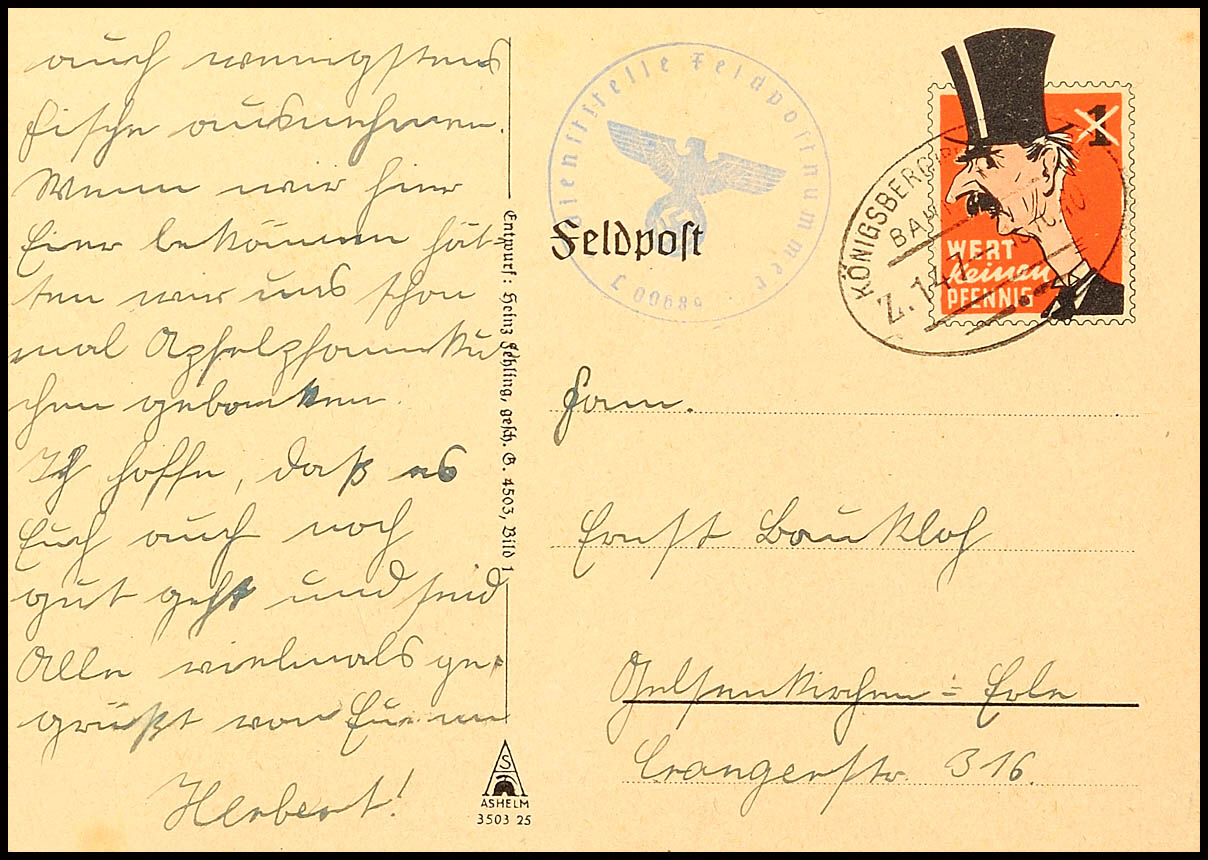 auch wenigstens
Fische ausnehmen.
Wenn wir hier
Eier bekämen hät-
ten wir uns schon
mal Apfelpfannku
chen gebacken.
Ich hoffe, daß es
Euch auch noch
gut geht und seid
Alle vielmals ge-
grüßt von Eurem
Herbert!
Entwurf: Heinz Fehling, gesch. G. 4503, Bild 1
ASHELM
3503 25
Dienststelle Feldpostnummer
L 00689
Feldpost
KÖNIGSBERG (PR)
BAH
Z. 147
10.40
1
WERT
keinen
PFENNIG
Fam.
Ernst Baukloh
Gelsenkirchen = Erle
Crangerstr. 316.